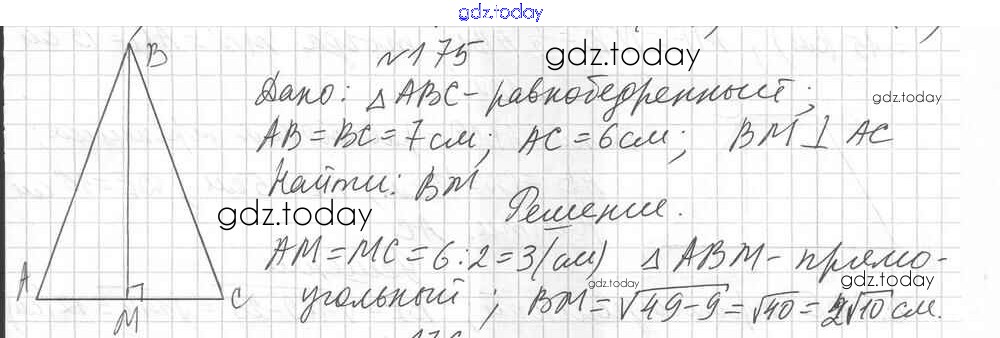 gdz.today
№175
gdz.today
B
Дано: △ABC - равнобедренный;
gdz.today
AB = BC = 7см; AC = 6см; BM ⊥ AC
Найти: BM
gdz.today
Решение.
AM = MC = 6 : 2 = 3 (см) △ ABM - прямо-
gdz.today
угольный; BM = √49-9 = √40 = 2√10 см.
gdz.today
A
C
M